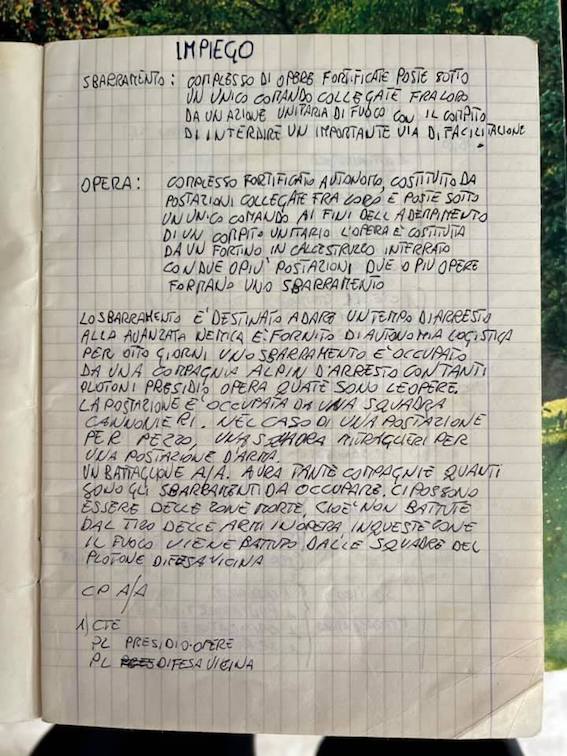 IMPIEGO
SBARRAMENTO: COMPLESSO DI OPERE FORTIFICATE POSTE SOTTO
UN UNICO COMANDO COLLEGATE FRA LORO
DA UN AZIONE UNITARIA DI FUOCO CON IL COMPITO
DI INTERDIRE UN IMPORTANTE VIA DI FACILITAZIONE
OPERA: COMPLESSO FORTIFICATO AUTONOMO, COSTITUITO DA
POSTAZIONI COLLEGATE FRA LORO E POSTE SOTTO
UN UNICO COMANDO AI FINI DELL ADEMPIMENTO
DI UN COMPITO UNITARIO L'OPERA E' COSTITUITA
DA UN FORTINO IN CALCESTRUZZO INTERRATO
CON DUE O PIU' POSTAZIONI DUE O PIU OPERE
FORMANO UNO SBARRAMENTO
LO SBARRAMENTO E' DESTINATO A DARE UN TEMPO DI ARRESTO
ALLA AVANZATA NEMICA E' FORNITO DI AUTONOMIA LOGISTICA
PER OTTO GIORNI UNO SBARRAMENTO E' OCCUPATO
DA UNA COMPAGNIA ALPIN D'ARRESTO CON TANTI
PLOTONI PRESIDIO OPERA QUATE SONO LE OPERE.
LA POSTAZIONE E' OCCUPATA DA UNA SQUADRA
CANNONIERI. NEL CASO DI UNA POSTAZIONE
PER PEZZO, UNA SQUADRA MITRAGLIERI PER
UNA POSTAZIONE D'ARMA.
UN BATTAGLIONE A/A. AVRA TANTE COMPAGNIE QUANTI
SONO GLI SBARRAMENTI DA OCCUPARE. CI POSSONO
ESSERE DELLE ZONE MORTE, CIOE' NON BATTUTE
DAL TIRO DELLE ARMI IN OPERA, IN QUESTE ZONE
IL FUOCO VIENE BATTUTO DALLE SQUADRE DEL
PLOTONE DIFESA VICINA
CP A/A
1) CTE
PL PRESIDIO-OPERE
PL DIFESA VICINA